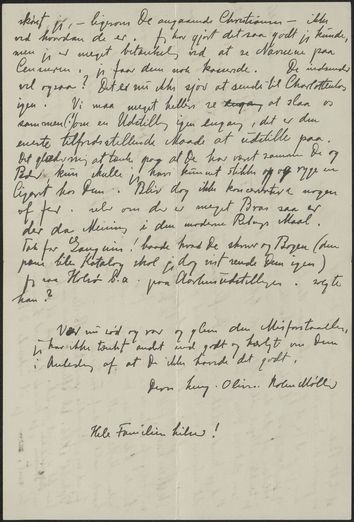 skønt jeg, – ligesom De angaaende Christiansen – ikke
ved hvordan de er. Jeg har gjort det saa godt jeg kunde,
men jeg er meget betænkelig ved at se Navnene paa
Censuren. jeg faar dem nok kasserede. De indsender
vel ogsaa? Det er mi ikke sjov at sende til Charlottenborg
igen. Vi maa meget hellere se at slaa os
sammen om en Udstilling igen engang, det er den
eneste tilfredsstillende Maade at udstille paa.
Det glæder mig at tænke paa at De har været sammen De og
kun skulle jeg have kunnet stikke op og ryge en
Cigaret hos Dem. Bliv dog ikke koncervative nogen
af Jer. selv om der er meget Bras saa er
der da Mening i den moderne Retnings Maal.
Tak for Gauguin! baade hvad De skrev og Bogen (den
pæne lille Katalog skal jeg dog vist sende Dem igen)
jeg saa paa Aarhusudstillingen. solgte
han?
Vær nu sød og rar og glem den Misforstaaelse,
jeg har ikke tænkt andet end godt og kærligt om Dem
i Anledning af at De ikke havde det godt.
Deres Olivia Holm-Møller
Hele Familien hilser!